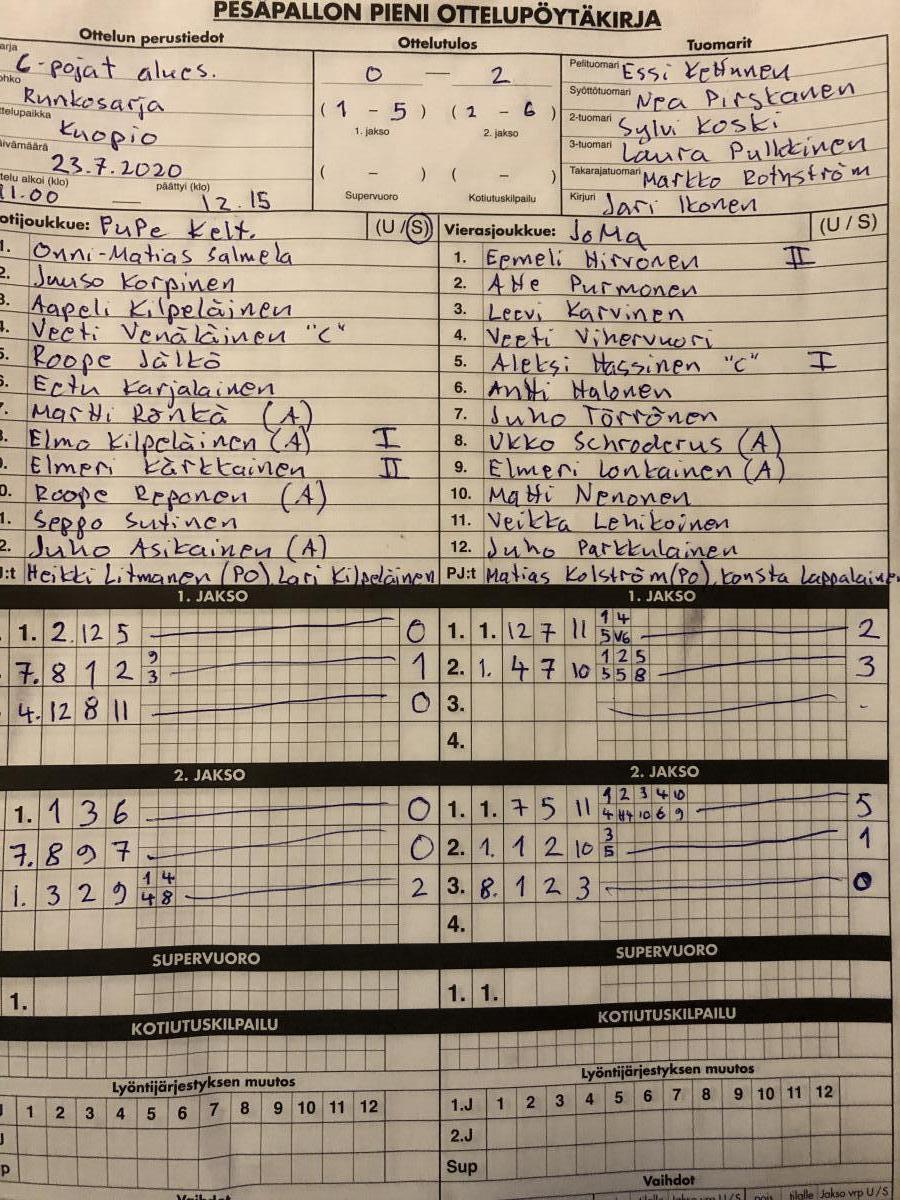 PESÄPALLON PIENI OTTELUPÖYTÄKIRJA
Ottelun perustiedot
Ottelutulos
Tuomarit
arja C-pojat alues.
ohko Runkosarja
ttelupaikka Kuopio
äivämäärä 23.7.2020
telu alkoi (klo) päättyi (klo)
11.00 — 12.15
0 — 2
( 1 - 5 ) ( 2 - 6 )
1. jakso 2. jakso
( - ) ( - )
Supervuoro Kotiutuskilpailu
Pelituomari Essi Kettunen
Syöttötuomari Nea Pirskanen
2-tuomari Sylvi Koski
3-tuomari Laura Pulkkinen
Takarajatuomari Markko Rothström
Kirjuri Jari Ikonen
otijoukkue: PuPe Kelt. (U / S)
1. Onni-Matias Salmela
2. Juuso Korpinen
3. Aapeli Kilpeläinen
4. Veeti Venäläinen "C"
5. Roope Jälkö
6. Eetu Karjalainen
7. Martti Rönkä (A)
8. Elmo Kilpeläinen (A) I
9. Elmeri Kärkkäinen II
0. Roope Reponen (A)
1. Seppo Sutinen
2. Juho Asikainen (A)
J:t Heikki Litmanen (PO), Lari Kilpeläinen
Vierasjoukkue: JoMa (U / S)
1. Eemeli Hirvonen II
2. Atte Purmonen
3. Leevi Karvinen
4. Veeti Vihervuori
5. Aleksi Hassinen "C" I
6. Antti Halonen
7. Juho Törrönen
8. Ukko Schroderus (A)
9. Elmeri Lonkainen (A)
10. Matti Nenonen
11. Veikka Lehikoinen
12. Juho Parkkulainen
PJ:t Matias Kolström (PO), Konsta Lappalainen
1. JAKSO
1. 2 12 5 0
7. 8 1 2 9 1
3
4. 12 8 11 0
1. JAKSO
1. 1. 12 7 11 1 4 2
5 V6
2. 1. 4 7 10 1 2 5 3
5 5 8
3. -
4.
2. JAKSO
1. 1 3 6 0
7. 8 9 7 0
1. 3 2 9 1 4 2
4 8
2. JAKSO
1. 1. 7 5 11 1 2 3 4 10 5
4 H4 10 6 9
2. 1. 1 2 10 3 1
5
3. 8. 1 2 3 0
4.
SUPERVUORO
1.
SUPERVUORO
1. 1.
KOTIUTUSKILPAILU
KOTIUTUSKILPAILU
Lyöntijärjestyksen muutos
J 1 2 3 4 5 6 7 8 9 10 11 12
J
p
Lyöntijärjestyksen muutos
1.J 1 2 3 4 5 6 7 8 9 10 11 12
2.J
Sup
Vaihdot
Vaihdot